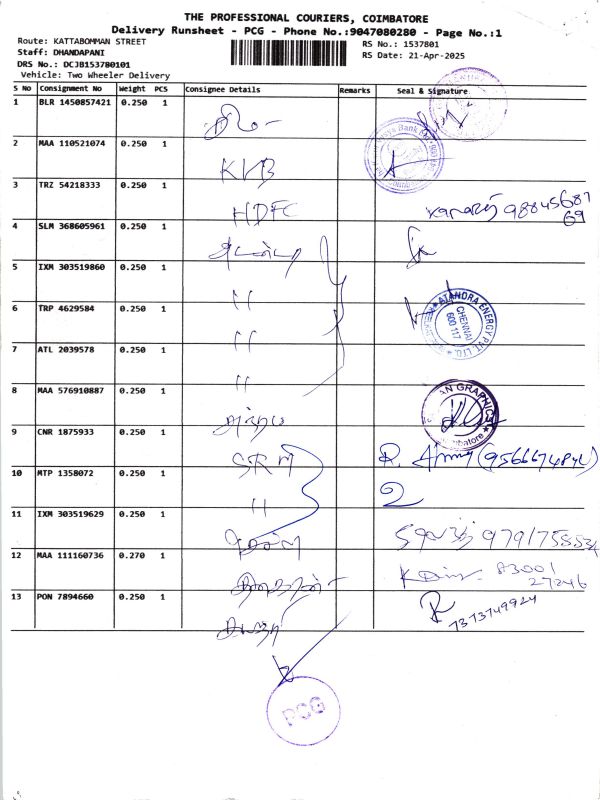 THE PROFESSIONAL COURIERS, COIMBATORE
Delivery Runsheet - PCG - Phone No.:9047080280 - Page No.:1
Route: KATTABOMMAN STREET
RS No.: 1537801
Staff: DHANDAPANI
RS Date: 21-Apr-2025
DRS No.: DCJB153780101
Vehicle: Two Wheeler Delivery
S No Consignment No Weight PCS Consignee Details Remarks Seal & Signature
1 BLR 1450857421 0.250 1
2 MAA 110521074 0.250 1 KVB
3 TRZ 54218333 0.250 1 HDFC 98845687
69
4 SLM 368605961 0.250 1
5 IXM 303519860 0.250 1 "
6 TRP 4629584 0.250 1 "
ATANDRA ENERGY PVT. LTD.
CHENNAI
600 117
7 ATL 2039578 0.250 1 "
8 MAA 576910887 0.250 1
GRAPHICS
Coimbatore
9 CNR 1875933 0.250 1 SRM R.
10 MTP 1358072 0.250 1 "
11 IXM 303519629 0.250 1
12 MAA 111160736 0.270 1 83001
27246
13 PON 7894660 0.250 1 7373749924
PCG